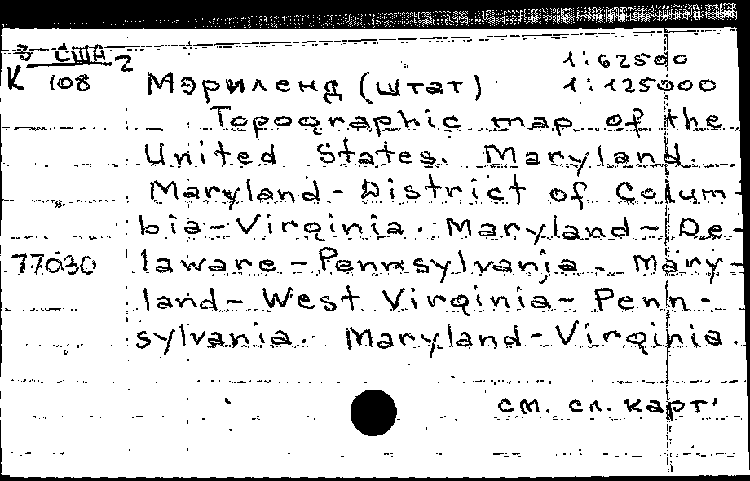 К 3 США/108 2
1:62500
Мэриленд (штат) 1:125000
Topographic map of the
United States. Maryland.
Maryland - District of Colum-
bia - Virginia. Maryland - De-
77030 laware - Pennsylvania. Mary-
land - West Virginia - Penn-
sylvania. Maryland - Virginia.
см. сл. карт.